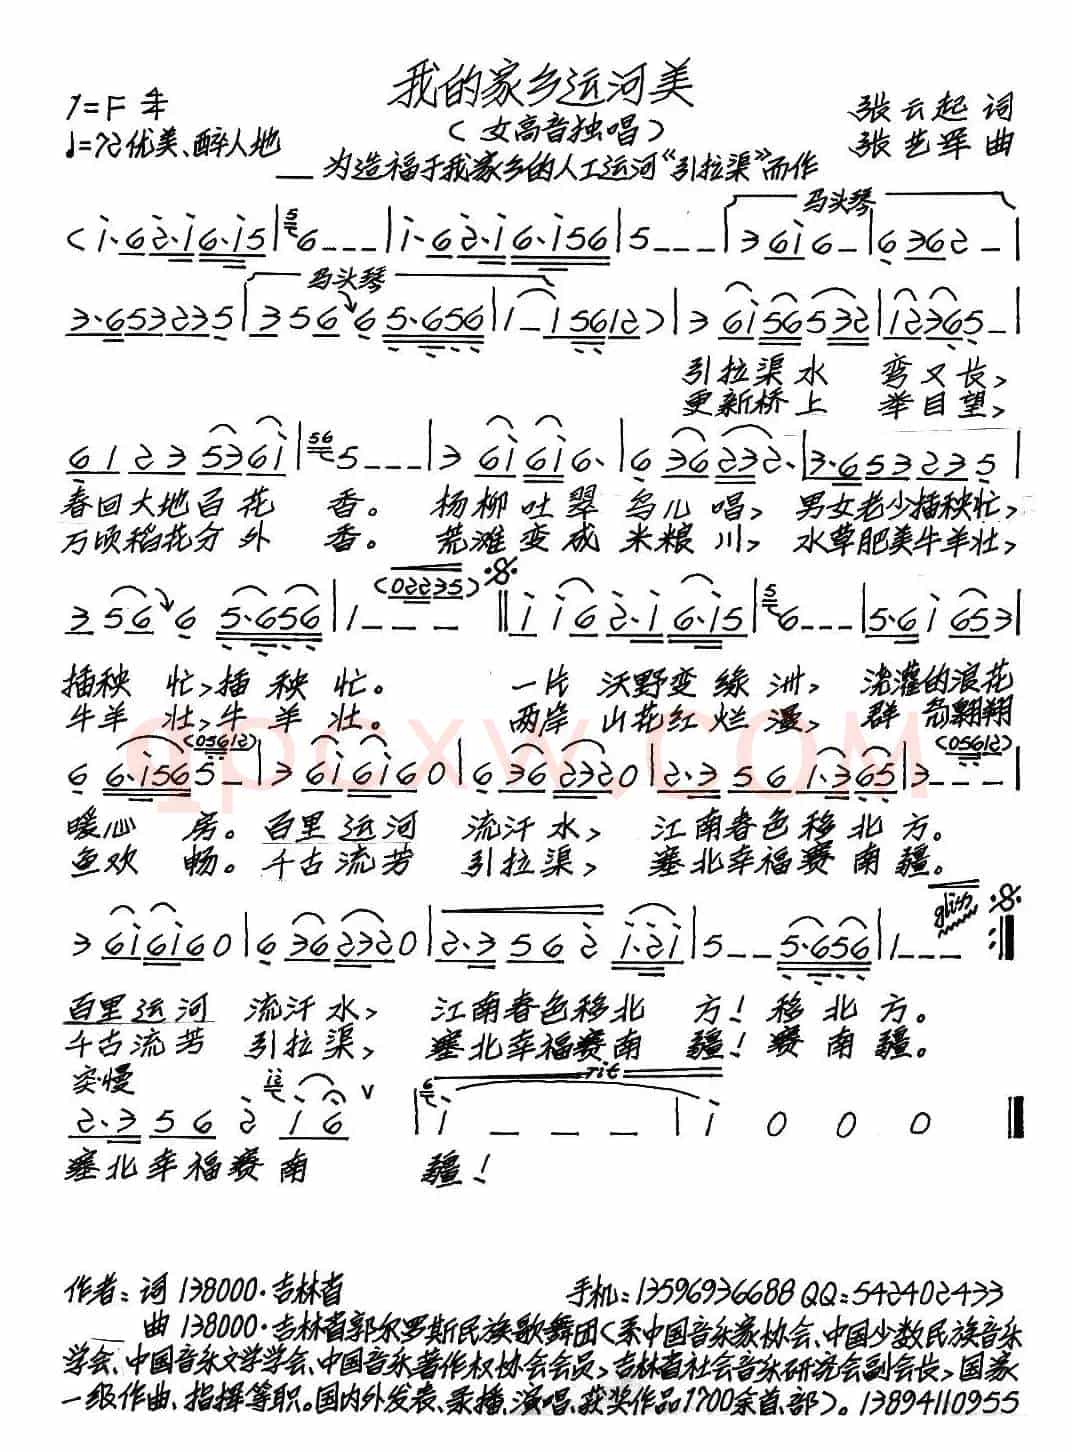 我的家乡运河美
1=F 4/4
(女高音独唱)
张云起 词
♩=72优美、醉人地
张艺军 曲
——为造福于我家乡的人工运河《引拉渠》而作
马头琴
(i·62·i6·i5|6---|i·62·i6·i56|5---|36i6-|6362-|
马头琴
3·653235|35665·656|1-i5612)|36i56532|12365-|
引拉渠水 弯又长,
更新桥上 举目望,
6123536i|5---|36i6i6·|636232·|3·653235|
春回大地百花 香。 杨柳吐翠鸟儿唱, 男女老少插秧忙,
万顷稻花分外 香。 荒滩变成米粮川, 水草肥美牛羊壮,
(02235)
35665·656|1---‖ii62·i6·i5|6---|5·6i653|
插秧 忙,插秧忙。 一片 沃野变绿洲, 浇灌的浪花
牛羊 壮,牛羊壮。 两岸 山花红烂漫, 群 翩翩
(05612) (05612)
66·i565--|36i6i60|6362320|2·3561·365|3---|
暖心 房。百里运河 流汗水, 江南春色移北方。
鱼欢 畅。千古流芳 引拉渠, 塞北幸福赛南疆。
gliss
36i6i60|6362320|2·3562i·2i|5--5·656|1---:‖
百里运河 流汗水, 江南春色移北 方!移北方。
千古流芳 引拉渠, 塞北幸福赛南 疆!赛南疆。
突慢 rit
2·3562i6 V|i---|i000‖
塞北幸福赛南 疆!
作者:词 138000·吉林省 手机:13596936688 QQ:542402433
曲 138000·吉林省郭尔罗斯民族歌舞团(系中国音乐家协会、中国少数民族音乐
学会、中国音乐文学学会、中国音乐著作权协会会员,吉林省社会音乐研究会副会长,国家
一级作曲、指挥等职。国内外发表、录播、演唱、获奖作品1700余首、部)。13894110955
qpcxw.COM